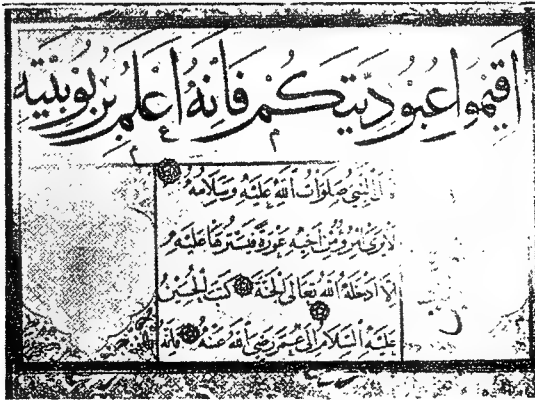 اَقِيْمُوا عُبُودِيَّتَكُمْ فَاِنَّهُ اَعْلَمُ بِرُبُوبِيَّتِهِ
قَالَ النَّبِيُّ صَلَوَاتُ اللّٰهِ عَلَيْهِ وَسَلَامُهُ
لَا يَرَى امْرُؤٌ مِنْ اَخِيهِ عَوْرَةً فَيَسْتُرُهَا عَلَيْهِ
اِلَّا اَدْخَلَهُ اللّٰهُ تَعَالَى الْجَنَّةَ كَتَبَ الْحُسَيْنُ
عَلَيْهِ السَّلَامُ اِلَى عُمَرَ رَضِيَ اللّٰهُ عَنْهُ فَاِنَّهُ